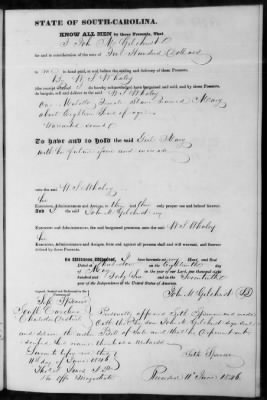 STATE OF SOUTH-CAROLINA.
KNOW ALL MEN by these Presents, That
I John M. Gilchrist
for and in consideration of the sum of Five Hundred Dollars
to me in hand paid, at and before the sealing and delivery of these Presents,
by W S Whaley
(the receipt whereof I do hereby acknowledge) have bargained and sold, and by these Presents,
do bargain, sell and deliver to the said W S Whaley
One Mulatto Female Slave named Mary
about Eighteen years of age
Warranted sound
To have and to hold the said Girl Mary
with her future issue and increase
unto the said W S Whaley
his
Executors, Administrators and Assigns, to his and their only proper use and behoof forever.
And I the said John M. Gilchrist my
Executors and Administrators, the said bargained premises, unto the said W S Whaley
his
Executors, Administrators and Assigns, from and against all persons shall and will warrant, and forever
defend by these Presents.
In Witness Whereof, I have hereunto set my Hand and Seal
Dated at Charleston on the Eighteenth day
of May in the year of our Lord, one thousand eight
hundred and Forty Six and in the Seventieth
year of the Independence of the United States of America.
Signed, Sealed and Delivered in the
Presence of
John M. Gilchrist
South Carolina
Charleston District
Personally appeared and made
Oath that he saw John M Gilchrist sign Seal
and deliver the within Bill of Sale and that he
signed his name thereto as a Witness
Sworn to before me this
11th day of June 1846
Recorded 11th June 1846.